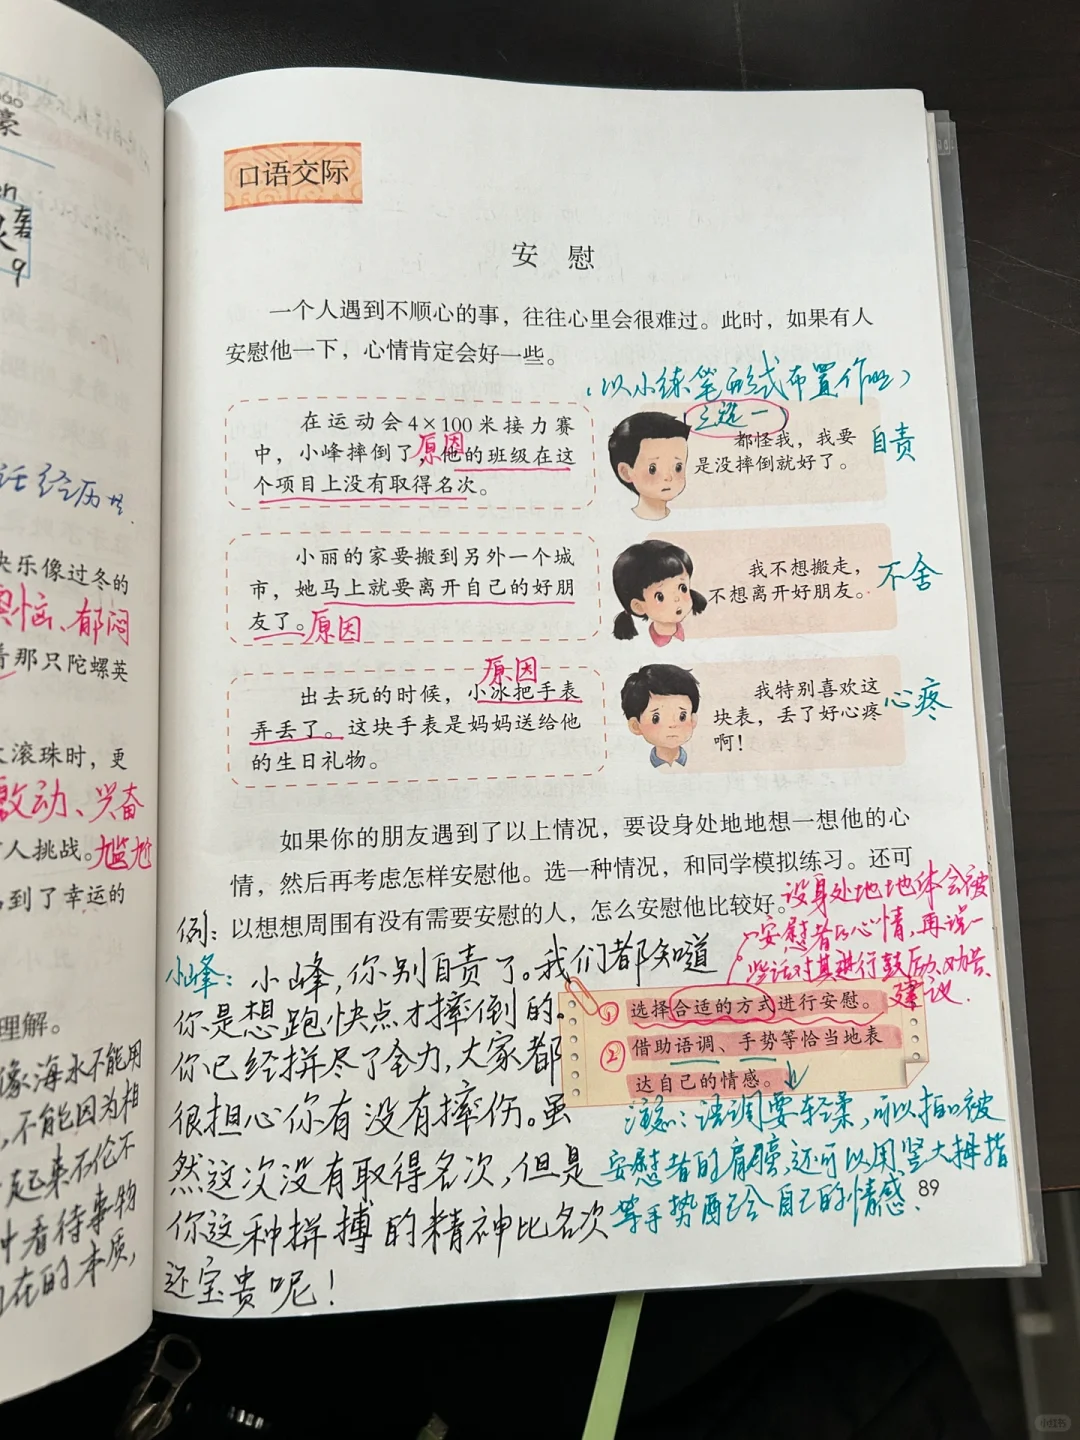 豪
袭
9
活经历
快乐像过冬的
懊恼、郁闷
着那只陀螺英
滚珠时，更
激动、兴奋
人挑战。尴尬
得到了幸运的
理解。
像海水不能用
，不能因为相
起来不伦不
看待事物
在的本质，
口语交际
安慰
一个人遇到不顺心的事，往往心里会很难过。此时，如果有人
安慰他一下，心情肯定会好一些。
（以小练笔形式布置作业）
三选一
在运动会4×100米接力赛
中，小峰摔倒了，他的班级在这
个项目上没有取得名次。
原因
都怪我，我要
是没摔倒就好了。
自责
小丽的家要搬到另外一个城
市，她马上就要离开自己的好朋
友了。原因
我不想搬走，
不想离开好朋友。
不舍
原因
出去玩的时候，小冰把手表
弄丢了。这块手表是妈妈送给他
的生日礼物。
我特别喜欢这
块表，丢了好心疼
啊！
心疼
如果你的朋友遇到了以上情况，要设身处地地想一想他的心
情，然后再考虑怎样安慰他。选一种情况，和同学模拟练习。还可
以想想周围有没有需要安慰的人，怎么安慰他比较好。
设身处地地体会被
安慰者的心情，再说一
些话对其进行鼓励、劝告、
建议.
①选择合适的方式进行安慰。
②借助语调、手势等恰当地表
达自己的情感。
注意：语调要轻柔，可以拍拍被
安慰者的肩膀，还可以用竖大拇指
等手势配合自己的情感.
例：
小峰：小峰，你别自责了。我们都知道
你是想跑快点才摔倒的。
你已经拼尽了全力，大家都
很担心你有没有摔伤。虽
然这次没有取得名次，但是
你这种拼搏的精神比名次
还宝贵呢！
89
小红书